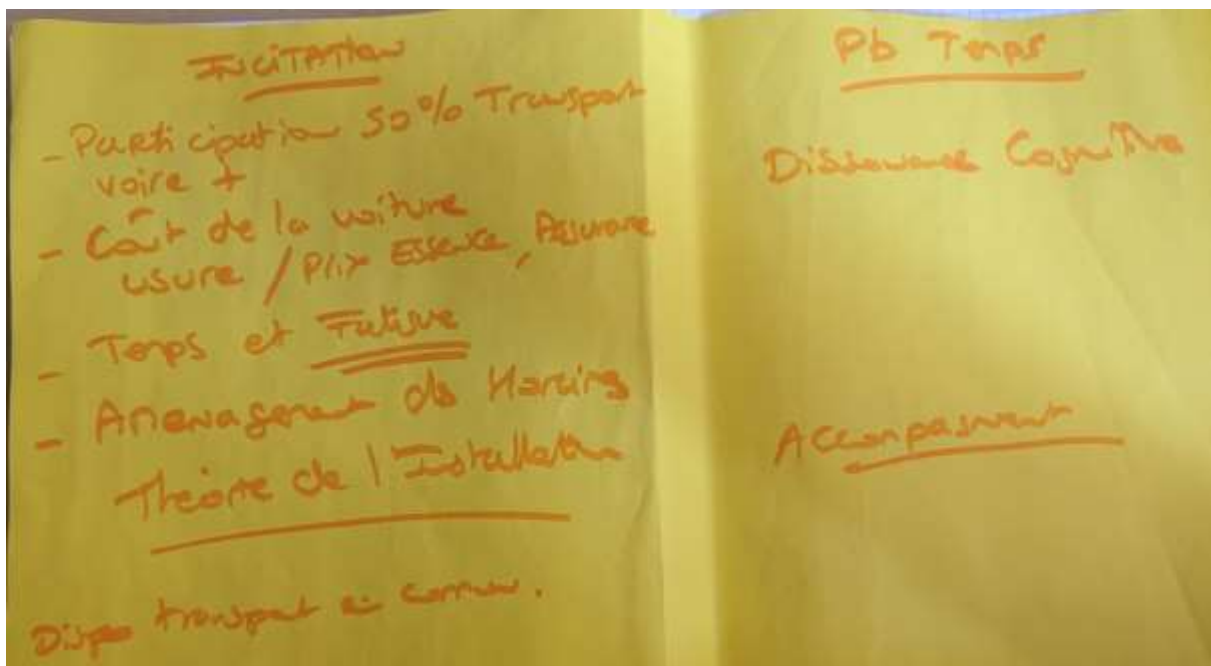 INCITATION
- Participation 50% Transport
voire +
- Coût de la voiture
usure / Prix Essence, Assurance
- Temps et Fatigue
- Amenagement des Horaires
Théorie de l'Installation
Dispo transport en commun.
Pb Temps
Dissonance Cognitive
Accompagnement